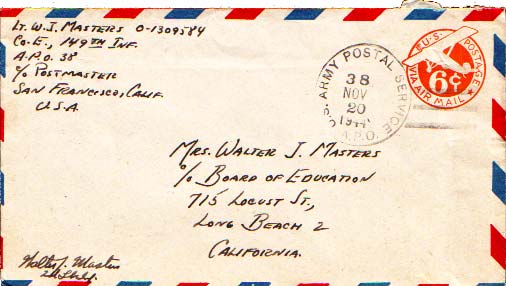 Lt. W. J. Masters O-1309584
Co. E., 149TH Inf.
A.P.O. 38
c/o Postmaster
San Francisco, Calif.
U.S.A.
U.S. ARMY POSTAL SERVICE
38
NOV
20
1944
A.P.O.
U.S. POSTAGE
6¢
VIA AIR MAIL
Mrs. Walter J. Masters
c/o Board of Education
715 Locust St.,
Long Beach 2
California.
Walter J. Masters
2d Lt.